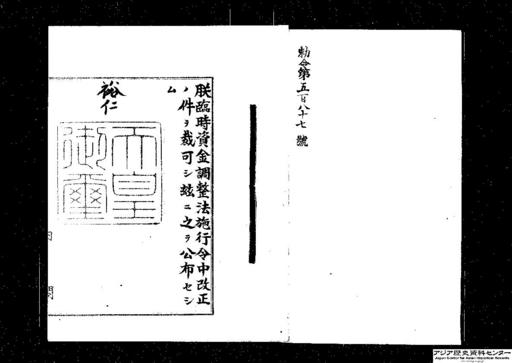 勅令第五百八十七號
朕臨時資金調整法施行令中改正
ノ件ヲ裁可シ玆ニ之ヲ公布セシ
ム
裕仁
天皇
御璽
内閣
アジア歴史資料センター
Japan Center for Asian Historical Records